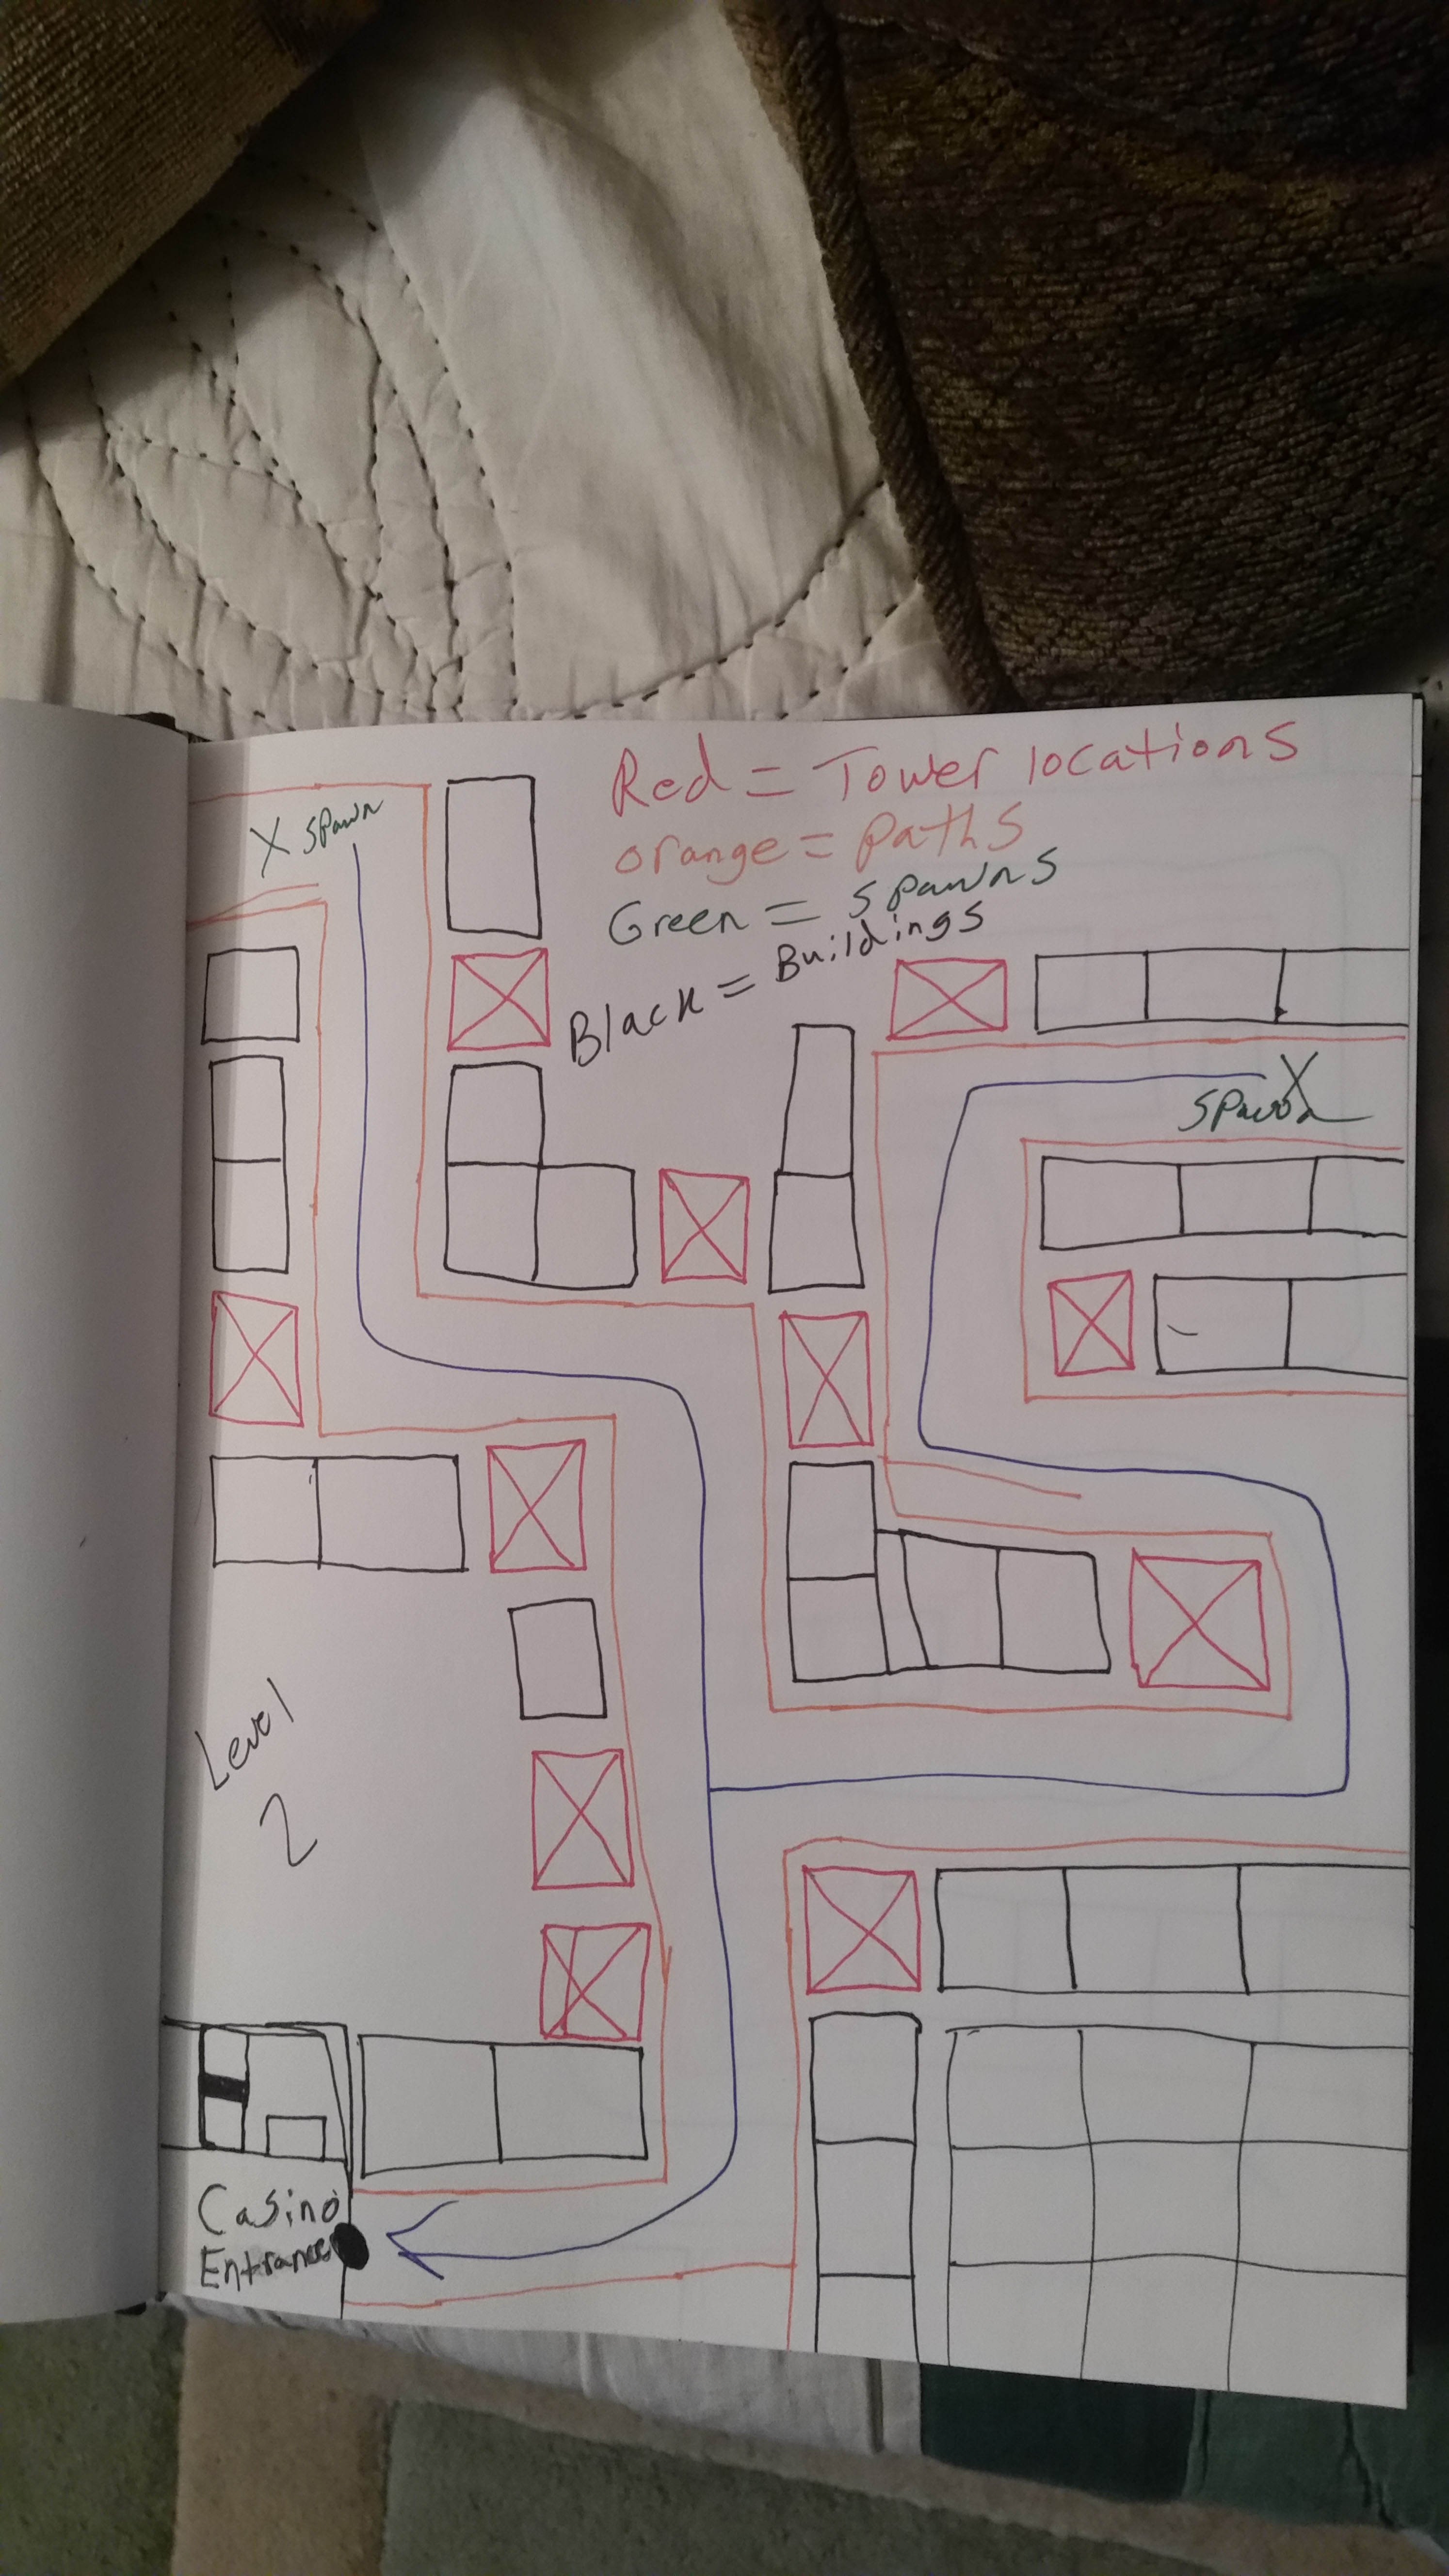 Red = Tower locations
orange = paths
Green = spawns
Black = Buildings
X spawn
X
spawn
Level
2
Casino
Entrance